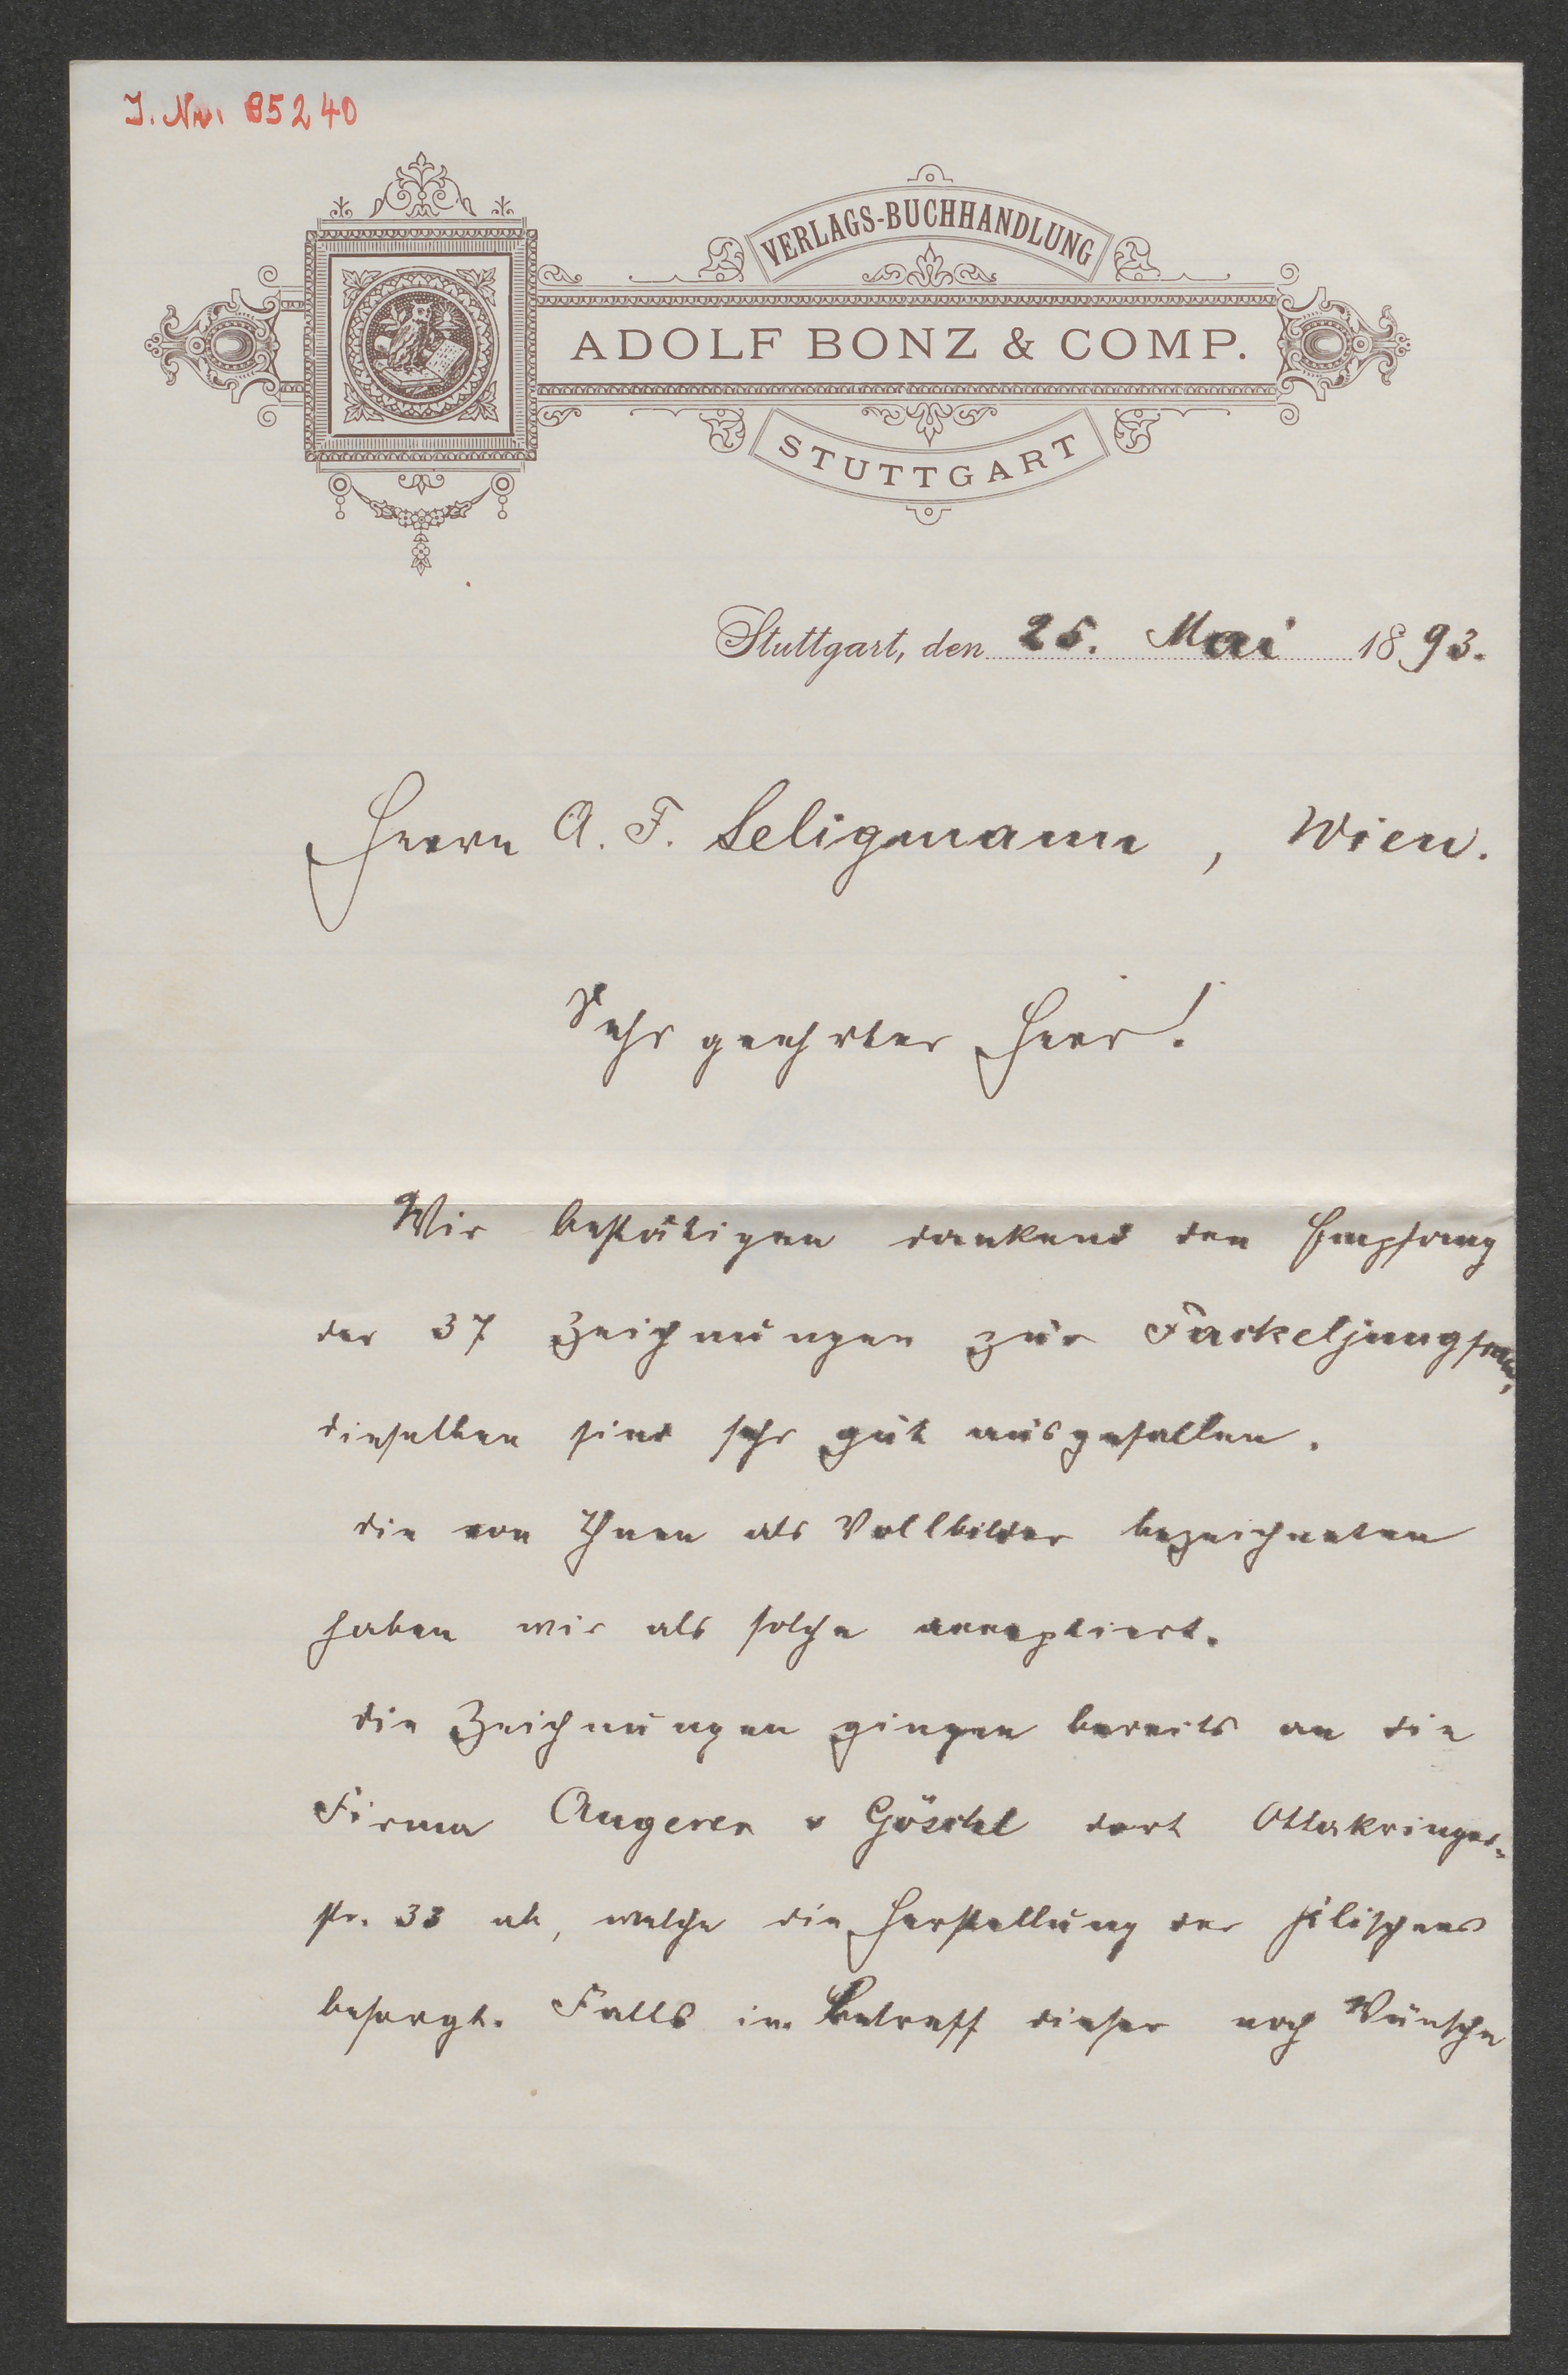 J. Nr. 85240
VERLAGS-BUCHHANDLUNG
ADOLF BONZ & COMP.
STUTTGART
Stuttgart, den 25. Mai 1893.
Herrn A. F. Seligmann, Wien.
Sehr geehrter Herr!
Wir bestätigen dankend den Empfang
der 37 Zeichnungen zur Fackeljungfrau,
dieselben sind sehr gut ausgefallen.
Die von Ihnen als Vollbilder bezeichneten
haben wir als solche acceptiert.
Die Zeichnungen gingen bereits an die
Firma Angerer & Göschl dort Ottakringer-
str. 33 ab, welche die Herstellung der
besorgt. Falls in Betreff dieser noch Wünsche